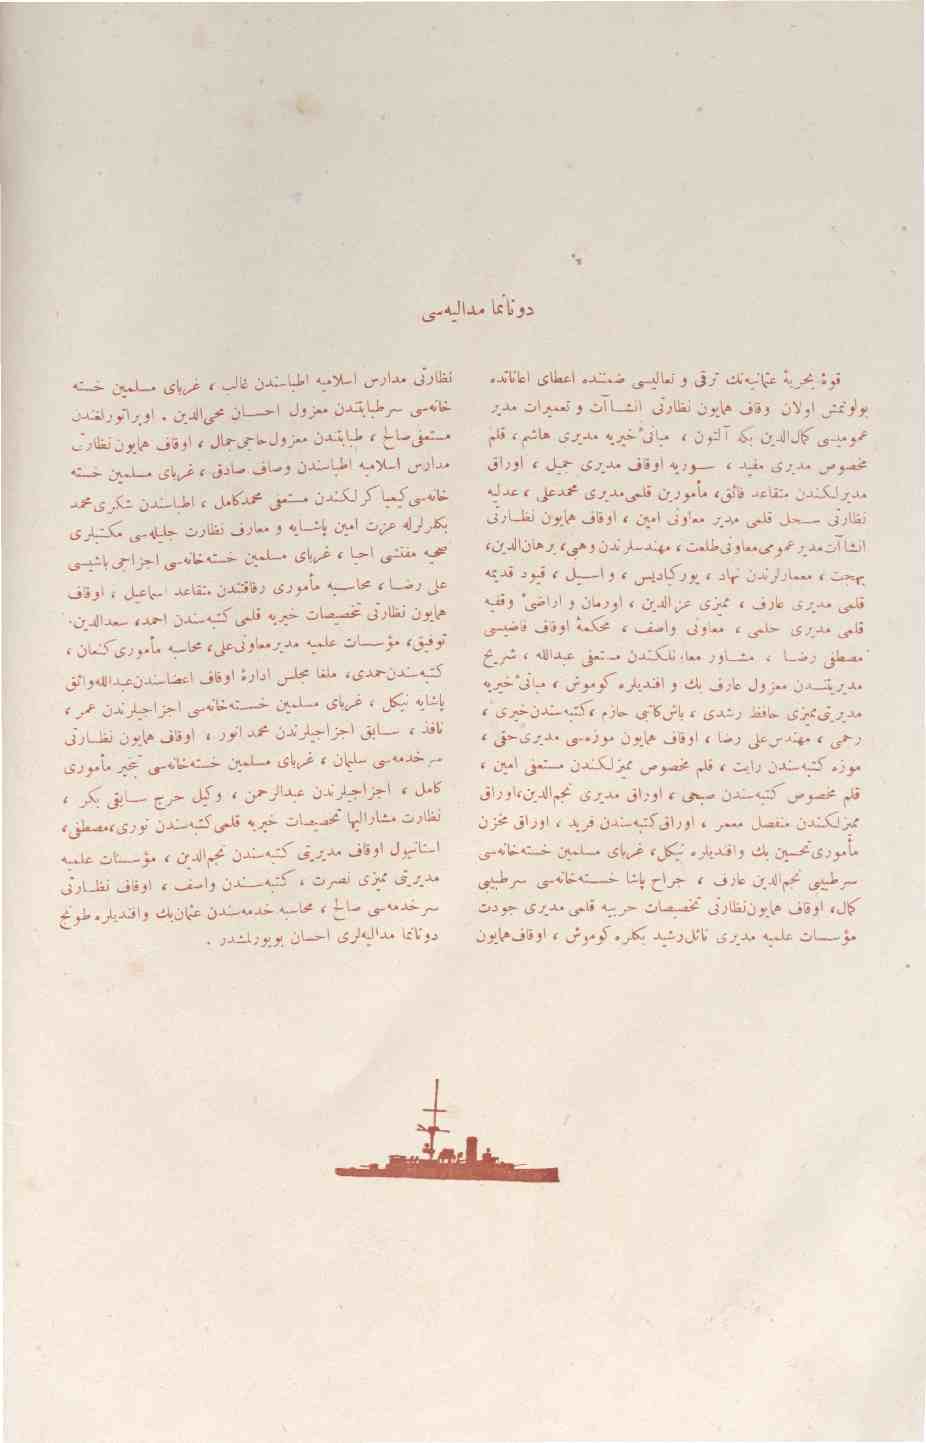 دونانما مدالیه‌سی
قوهٔ بحریهٔ عثمانیه‌نك ترقی و تعالیسی ضمننده اعطای اعاناتده
بولونمش اولان وقاف همایون نظارتی انشاآت و تعمیرات مدیر
عمومیسی کمال‌الدین بکه آلتون ، مبانیٔ خیریه مدیری هاشم ، قلم
مخصوص مدیری مفید ، سوریه اوقاف مدیری جمیل ، اوراق
مدیرلکندن متقاعد فائق، مأمورین قلمی مدیری محمدعلی ، عدلیه
نظارتی سجل قلمی مدیر معاونی امین ، اوقاف همایون نظارتی
انشاآت مدیر عمومی معاونی طلعت ، مهندسلرندن وهبی، برهان‌الدین،
بهجت ، معمارلرندن نهاد ، یورکیادیس ، واسیل ، قیود قدیمه
قلمی مدیری عارف ، ممیزی عزالدین ، اورمان و اراضیٔ وقفیه
قلمی مدیری حلمی ، معاونی واصف ، محکمهٔ اوقاف قاضیسی
مصطفی رضا ، مشاور معاونلکندن مستعفی عبدالله ، شریح
مدیریتندن معزول عارف بك و افندیلره کوموش ، مبانیٔ خیریه
مدیریتی ممیزی حافظ رشدی ، باش‌کاتبی حازم ، کتبه‌سندن خیری ،
رحمی ، مهندس علی رضا ، اوقاف همایون موزه‌سی مدیری حقی ،
موزه کتبه‌سندن رأیت ، قلم مخصوص ممیزلکندن مستعفی امین ،
قلم مخصوص کتبه‌سندن صبحی ، اوراق مدیری نجم‌الدین، اوراق
ممیزلکندن منفصل معمر ، اوراق کتبه‌سندن فرید ، اوراق مخزن
مأموری تحسین بك وافندیلره نیکل، غربای مسلمین خسته‌خانه‌سی
سرطبیبی نجم‌الدین عارف ، جراح پاشا خسته‌خانه‌سی سرطبیبی
کمال ، اوقاف همایون نظارتی تخصیصات حربیه قلمی مدیری جودت
مؤسسات علمیه مدیری نائل رشید بکلره کوموش ، اوقاف همایون
نظارتی مدارس اسلامیه اطباسندن غالب ، غربای مسلمین خسته
خانه‌سی سرطبابتندن معزول احسان محیی‌الدین . اوپراتورلغندن
مستعفی صالح ، طبابتندن معزول حاجی جمال ، اوقاف همایون نظارت
مدارس اسلامیه اطباسندن وصاف صادق ، غربای مسلمین خسته
خانه‌سی کیمیاکرلکندن مستعفی محمدکامل ، اطباسندن شکری محمد
بکلرلرله عزت امین پاشایه و معارف نظارت جلیله‌سی مکتبلری
صحیه مفتشی احیا ، غربای مسلمین خسته‌خانه‌سی اجزاجی باشیسی
علی رضا ، محاسبه مأموری رفاقتندن متقاعد اسماعیل ، اوقاف
همایون نظارتی تخصیصات خیریه قلمی کتبه‌سندن احمد، سعدالدین
توفیق، مؤسسات علمیه مدیر معاونی علی ، محاسبه مأموری کنعان ،
کتبه‌سندن حمدی، ملغا مجلس ادارهٔ اوقاف اعضاسندن عبدالله واثق
پاشایه نیکل ، غربای مسلمین خسته‌خانه‌سی اجزاجیلرندن عمر ،
نافذ ، سابق اجزاجیلرندن محمد انور ، اوقاف همایون نظارتی
سرخدمه‌سی سلیمان ، غربای مسلمین خسته‌خانه‌سی تبخیر مأموری
کامل ، اجزاجیلرندن عبدالرحمن ، وکیل خرج سابقی بکر ،
نظارت مشارالیها تخصیصات خیریه قلمی کتبه‌سندن نوری، مصطفی،
استانبول اوقاف مدیریتی کتبه‌سندن نجم‌الدین ، مؤسسات علمیه
مدیریتی ممیزی نصرت ، کتبه‌سندن واصف ، اوقاف نظارتی
سرخدمه‌سی صالح ، محاسبه خدمه‌سندن عثمان بك وافندیلره طونج
دونانما مدالیه‌لری احسان بویورلمشدر .